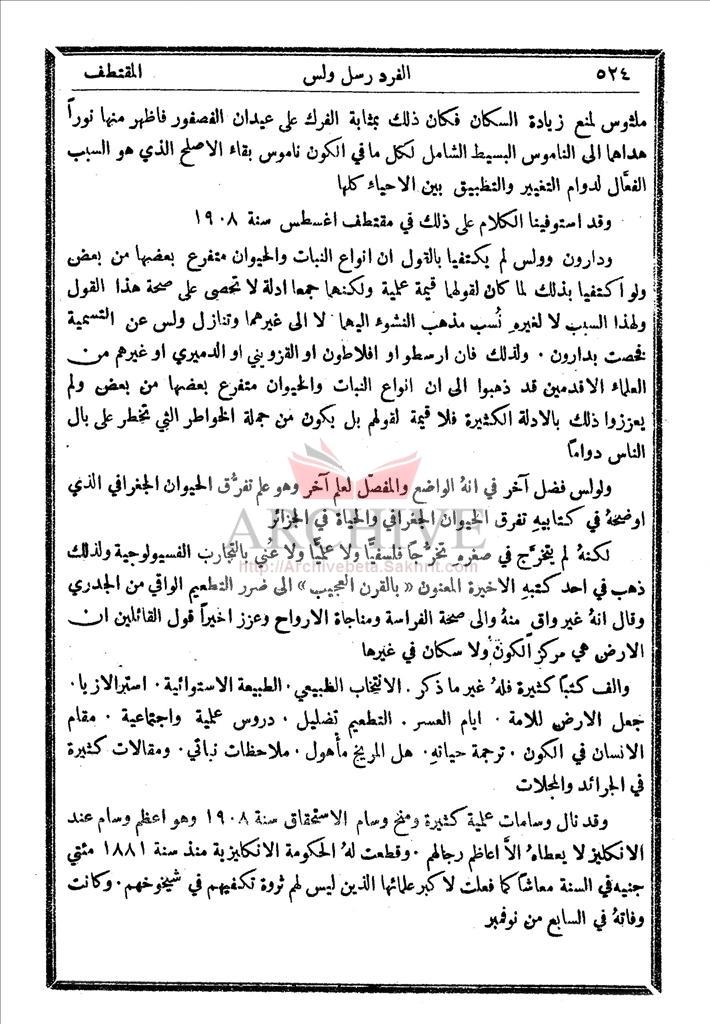 ٥٢٤
الفرد رسل ولس
المقتطف
ملثوس لمنع زيادة السكان فكان ذلك بمثابة الفرك على عيدان الفصفور فاظهر منها نوراً
هداها الى الناموس البسيط الشامل لكل ما في الكون ناموس بقاء الاصلح الذي هو السبب
الفعَّال لدوام التغيير والتطبيق بين الاحياء كلها
وقد استوفينا الكلام على ذلك في مقتطف اغسطس سنة ١٩٠٨
ودارون وولس لم يكتفيا بالقول ان انواع النبات والحيوان متفرع بعضها من بعض
ولو اكتفيا بذلك لما كان لقولهما قيمة علمية ولكنهما جمعا ادلة لا تحصى على صحة هذا القول
ولهذا السبب لا لغيرهِ نُسب مذهب النشوء اليهما لا الى غيرهما وتنازل ولس عن التسمية
فخصت بدارون ٠ ولذلك فان ارسطو او افلاطون او القزويني او الدميري او غيرهم من
العلماء الاقدمين قد ذهبوا الى ان انواع النبات والحيوان متفرع بعضها من بعض ولم
يعززوا ذلك بالادلة الكثيرة فلا قيمة لقولهم بل يكون من جملة الخواطر التي تخطر على بال
الناس دواماً
ولولس فضل آخر في انهُ الواضع والمفصّل لعلم آخر وهو علم تفرُّق الحيوان الجغرافي الذي
اوضحهُ في كتابيهِ تفرق الحيوان الجغرافي والحياة في الجزائر
ARCHIVE
لكنهُ لم يتخرَّج في صغرهِ تخرُّجاً فلسفيّاً ولا علميّاً ولا عُني بالتجارب الفسيولوجية ولذلك
http://Archivebeta.Sakhrit.com
ذهب في احد كتبهِ الاخيرة المعنون « بالقرن العجيب » الى ضرر التطعيم الواقي من الجدري
وقال انهُ غير واقٍ منهُ والى صحة الفراسة ومناجاة الارواح وعزز اخيراً قول القائلين ان
الارض هي مركز الكون ولا سكان في غيرها
والف كتباً كثيرة فلهُ غير ما ذكر . الانتخاب الطبيعي ٠ الطبيعة الاستوائية ٠ استرالازيا ٠
جعل الارض للامة ٠ ايام العسر . التطعيم تضليل ٠ دروس علمية واجتماعية ٠ مقام
الانسان في الكون ٠ ترجمة حياتهِ ٠ هل المريخ مأهول ٠ ملاحظات نباتي ٠ ومقالات كثيرة
في الجرائد والمجلات
وقد نال وسامات علمية كثيرة ومنح وسام الاستحقاق سنة ١٩٠٨ وهو اعظم وسام عند
الانكليز لا يعطاهُ الاَّ اعاظم رجالهم ٠ وقطعت لهُ الحكومة الانكليزية منذ سنة ١٨٨١ مئتي
جنيه في السنة معاشاً كما فعلت لاكبر علمائها الذين ليس لهم ثروة تكفيهم في شيخوختهم ٠ وكانت
وفاتهُ في السابع من نوفمبر